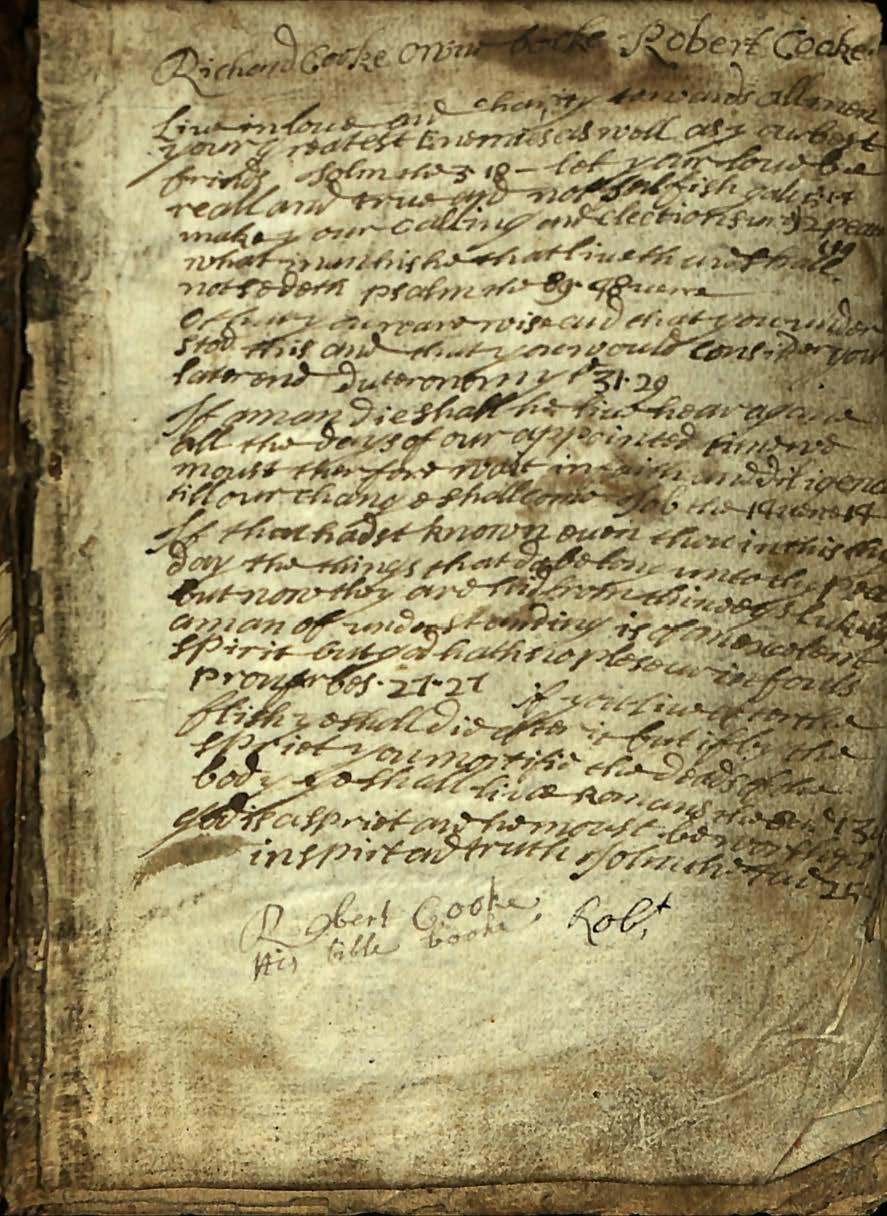 Richard Cooke owne booke Robert Cooke
Live in love and charity towards all men
your greatest Enemies as well as your best
frinds John the 3 18 - let your love be
reall and true and not selfish
make your calling and election sur 2 pear
what man is he that liveth and shall
not se deth psalm the 89. 48 verse
O that you ware wise and that you under
stod this and that you would Consider your
later end Duteronomy 31. 29
If a man die shall he live hear agane
all the days of our appointed time we
moust therfore wait in and diligenc
till our change shall come Job the 14 verse 14
If thou hadst known even thou in this thy
day the things that do belong unto thy peac
but now they are hid from thine eys
a man of understanding is of an excelent
spirit but god hath no plesour in fouls
Proverbes. 27. 27 if you live after the
flish ye shall die after it but if by the
spriet you mortifie the deads of the
body ye shall live Romans the 13
god is a spriet and he moust be
in spirt and truth John the 4 24
Robert Cooke Robt
His bible booke